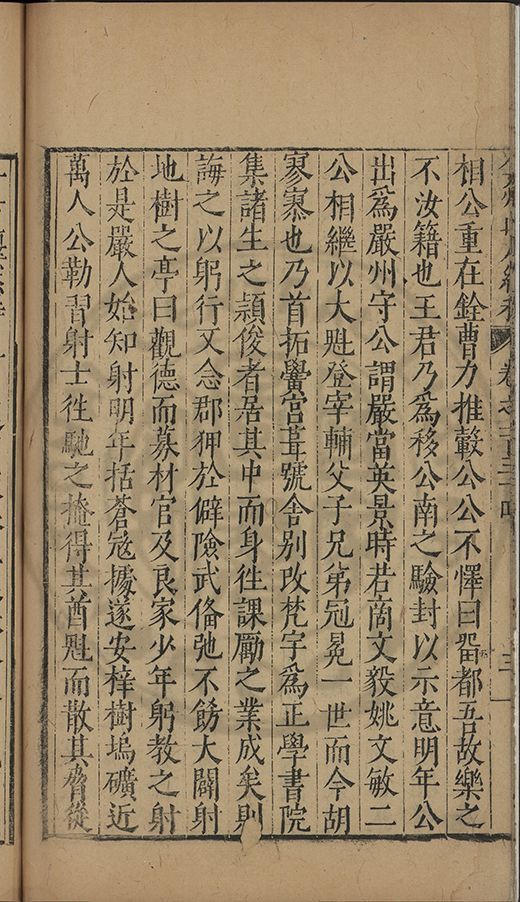 相公重在銓曹力推轂公公不懌曰畱都吾故樂之
不汝籍也王君乃爲移公南之驗封以示意明年公
出爲嚴州守公謂嚴當英景時若啇文毅姚文敏二
公相繼以大魁登宰輔父子兄弟冠冕一世而今胡
寥寥也乃首拓黌宮葺號舍别改梵宇爲正學書院
集諸生之頴俊者居其中而身徃課勵之業成矣則
誨之以躬行又念郡狎於僻險武俻弛不飭大闢射
地樹之亭曰觀德而募材官及良家少年躬教之射
於是嚴人始知射明年括蒼宼據遂安梓樹塢礦近
萬人公勒習射士徃馳之掩得其酋魁而散其脅從
卷之一百三十
三